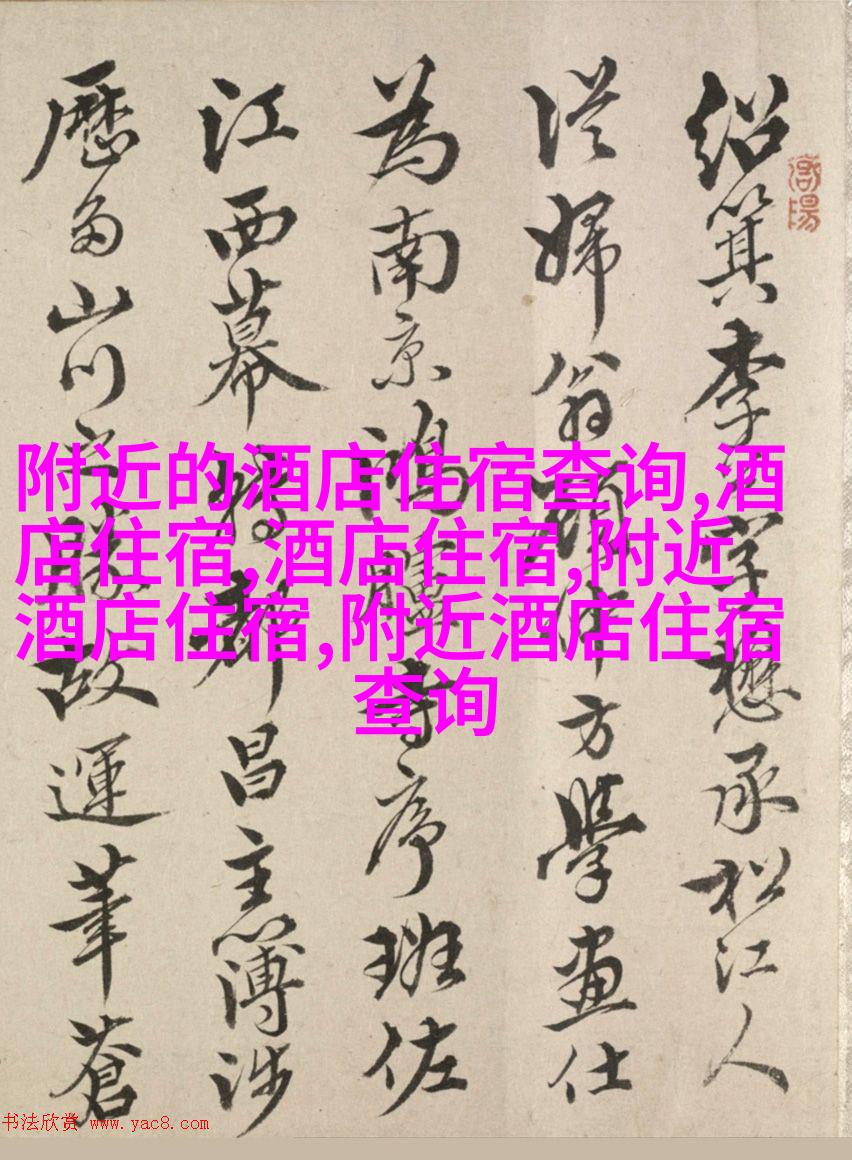 紹箕李字懋承松江人
從婦翁顧仲方學畫仕
為南京鴻臚寺序班佐
江西幕轉都昌主簿涉
歷多山川之勝故運筆蒼
附近的酒店住宿查询,酒
店住宿,酒店住宿,附近
酒店住宿,附近酒店住宿
查询
书法欣赏 www.yac8.com